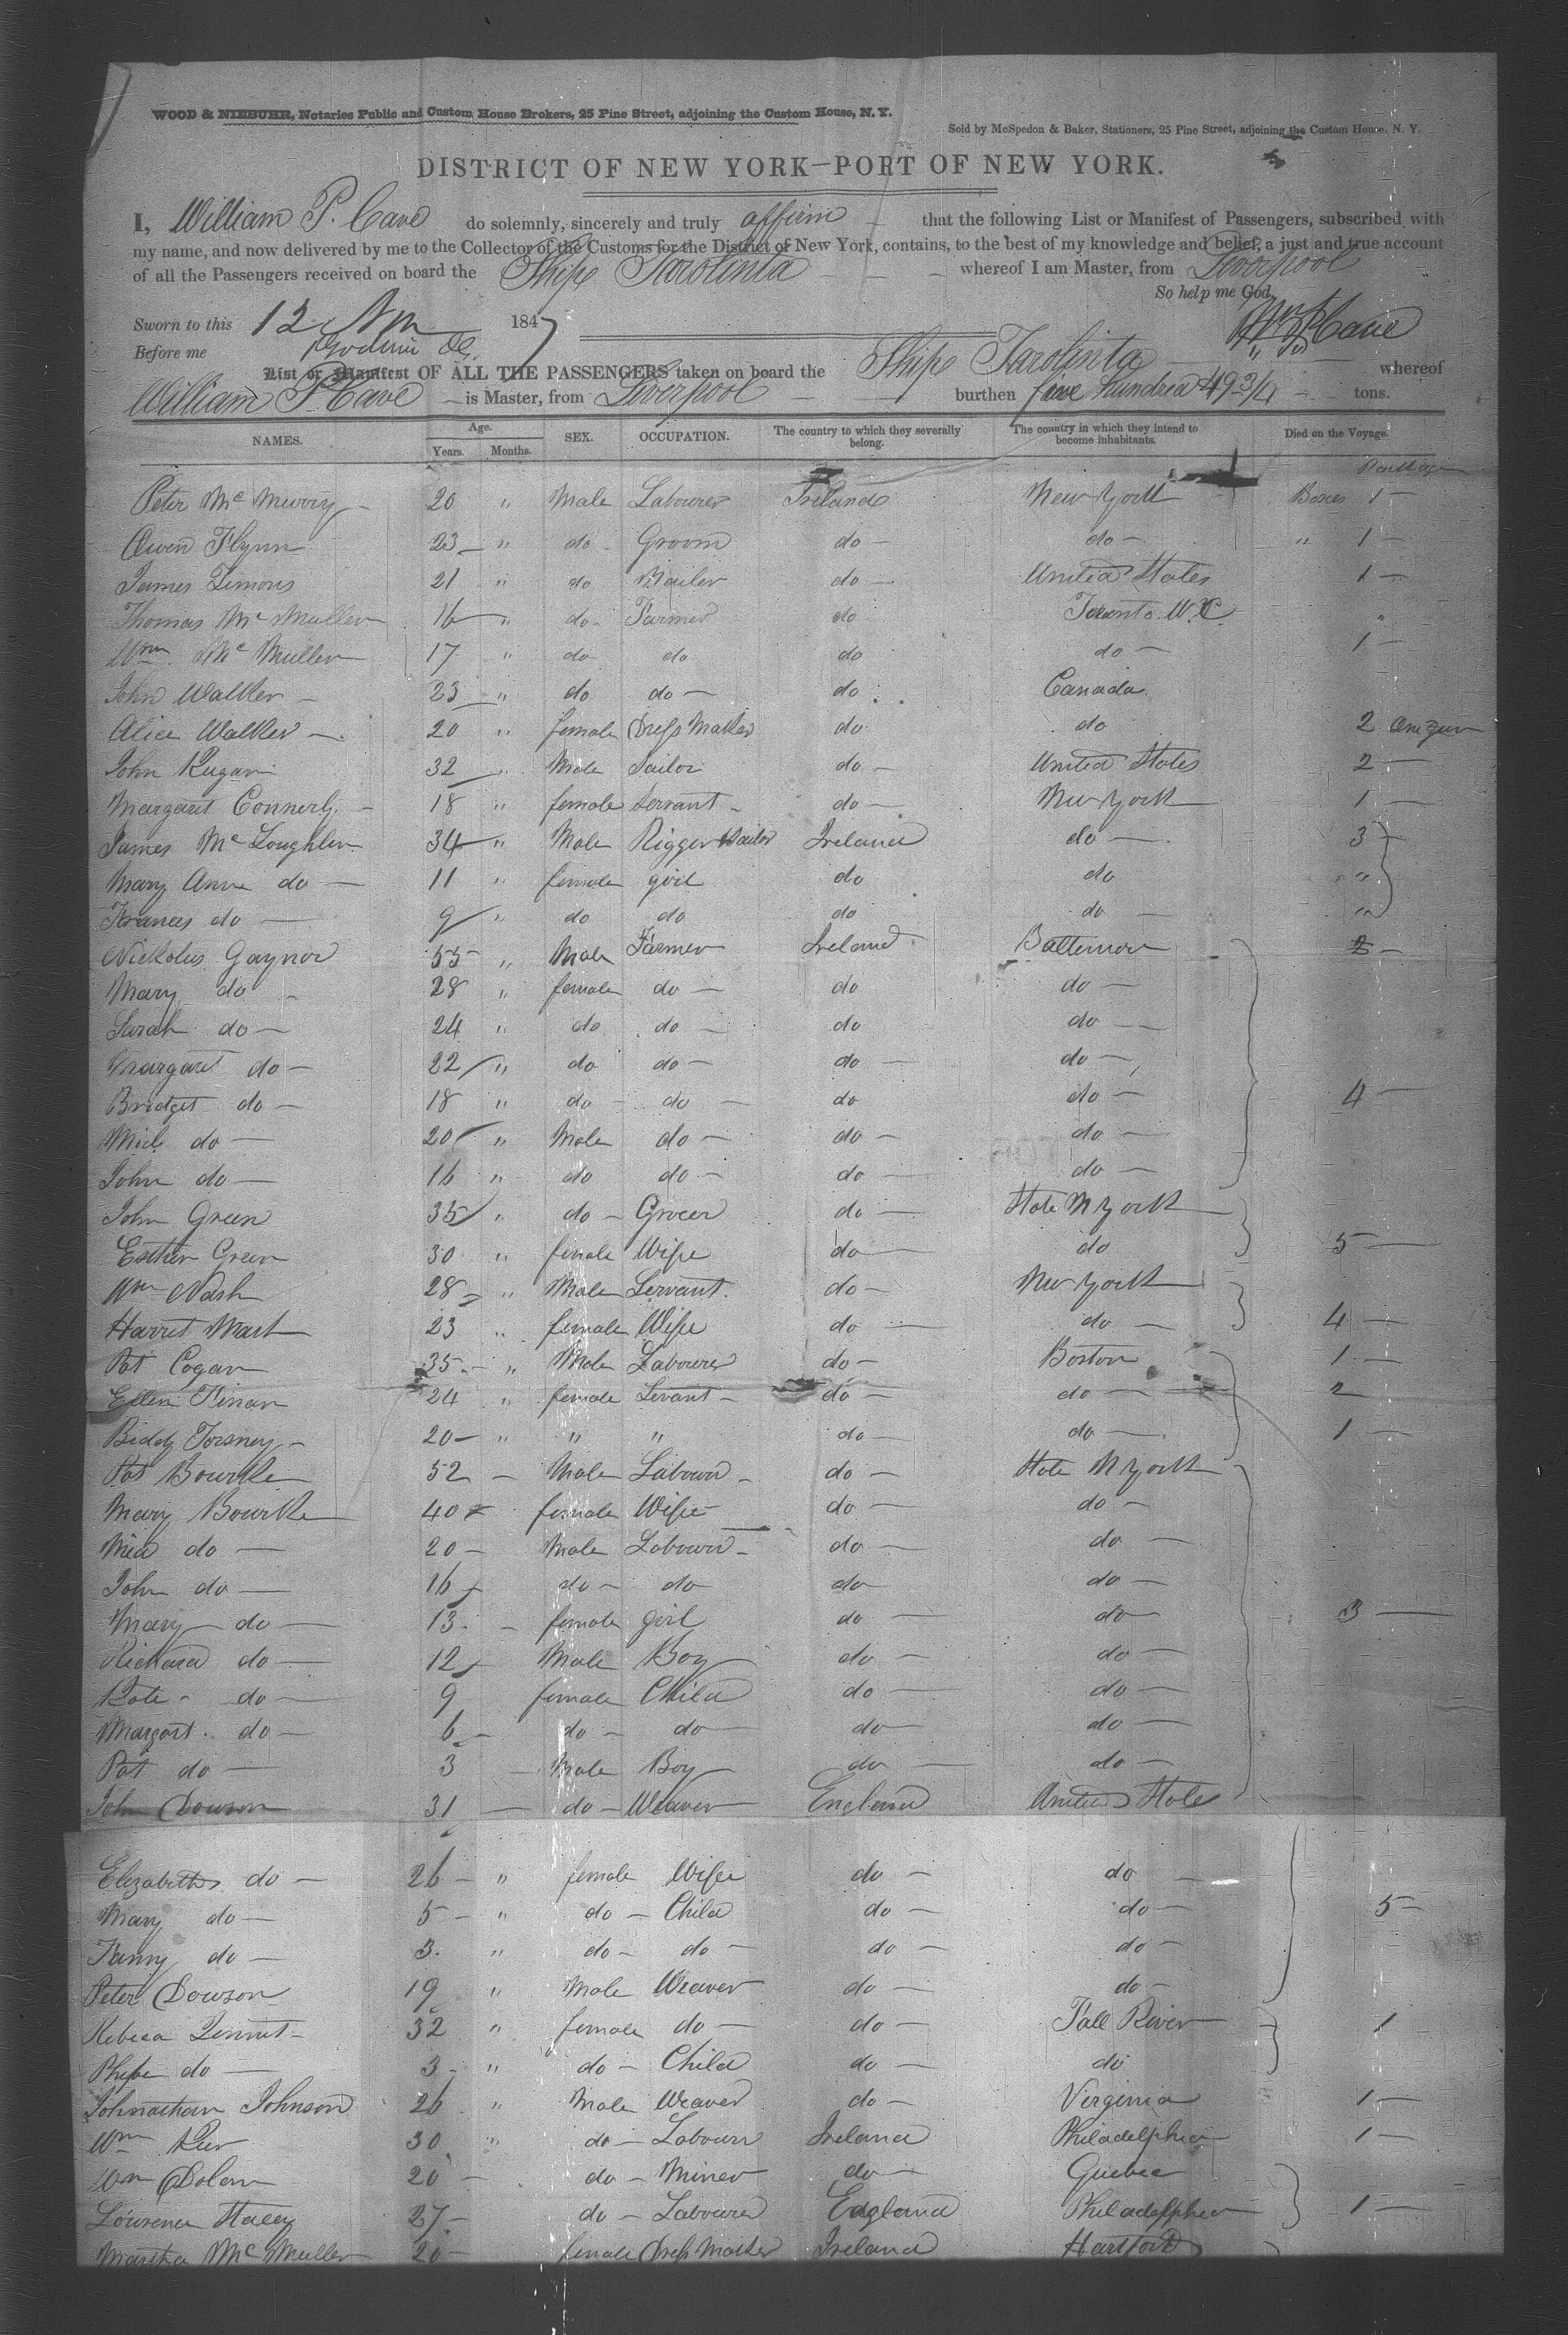 WOOD & NIEBUHR, Notaries Public and Custom House Brokers, 25 Pine Street, adjoining the Custom House, N. Y.
Sold by McSpedon & Baker, Stationers, 25 Pine Street, adjoining the Custom House, N. Y.
DISTRICT OF NEW YORK—PORT OF NEW YORK.
I, William P. Cave do solemnly, sincerely and truly affirm that the following List or Manifest of Passengers, subscribed with
my name, and now delivered by me to the Collector of the Customs for the District of New York, contains, to the best of my knowledge and belief, a just and true account
of all the Passengers received on board the Ship Tarolinta whereof I am Master, from Liverpool
So help me God,
Sworn to this 12 1847 Wm P Cave
Before me
List or Manifest OF ALL THE PASSENGERS taken on board the Ship Tarolinta whereof
William P Cave is Master, from Liverpool burthen five hundred 49 3/4 tons.
NAMES. Age. Years. Months. SEX. OCCUPATION. The country to which they severally belong. The country in which they intend to become inhabitants. Died on the Voyage.
Peter Mc 20 " Male Labourer Ireland New York Boxes 1 —
Owen Flynn 23 — " do Groom do — do — " 1 —
James Timons 21 " do do — United States 1 —
Thomas Mc Mullen 16 — " do Farmer do Toronto W. C. "
Wm Mc Mullen 17 " do do do do — 1 —
John Walker — 23 " do do — do Canada
Alice Walker — 20 " female Dress Maker do do 2
John 32 " Male Sailor do — United States 2 —
Margaret Connerly — 18 " female Servant — do — New York 1 —
James Mc Loughlen 34 — " Male Rigger Ireland do — 3
Mary Ann do — 11 " female girl do do "
Frances do — 9 " do do do do — "
Nickolus Gaynor 55 " Male Farmer Ireland Baltimore 2 —
Mary do — 28 " female do — do do —
Sarah do — 24 " do do — do do —
Margaret do — 22 " do do — do — do —
Bridget do — 18 " do do — do do — 4 —
Mich do — 20 " Male do — do — do —
John do — 16 " do do — do — do —
John Green 35 " do — Grocer do — State N York
Esther Green 30 " female Wife do — do 5 —
Wm Nash 28 " Male Servant do — New York
Harriet Nash 23 " female Wife do — do — 4 —
Pat Cogan 35 — " Male Labourer do — Boston 1 —
Ellen Kinan 24 " female Servant — do — do — 2
Biddy Torsney — 20 — " " " do — do — 1 —
Pat Bourke 52 — Male Labourer — do — State N York
Mary Bourke 40 female Wife do — do —
Mic do — 20 — Male Labourer — do — do —
John do — 16 do — do do do —
Mary do — 13 — female girl do — do 3 —
Richard do — 12 Male Boy do — do —
Kate do — 9 female Child do — do —
Margart do — 6 — do — do — do — do —
Pat do — 3 — Male Boy do — do —
John Dowson 31 — do — Weaver England United States
Elizabeth do — 26 — " female Wife do — do —
Mary do — 5 — " do — Child do — do — 5 —
Fanny do — 3 " do — do — do — do —
Peter Dowson 19 " Male Weaver do — do —
Rebeca 32 " female do — do — Fall River 1
Phebe do — 3 — " do — Child do — do
Johnathan Johnson 26 " Male Weaver do — Virginia 1 —
Wm 30 " do — Labourer Ireland Philadelphia 1 —
Wm Dolan 20 — do — Miner do — Quebec
Lowrence Stacey 27 — do — Labourer England Philadelphia 1 —
Martha Mc Mullen 20 — female Dress Maker Ireland Hartford